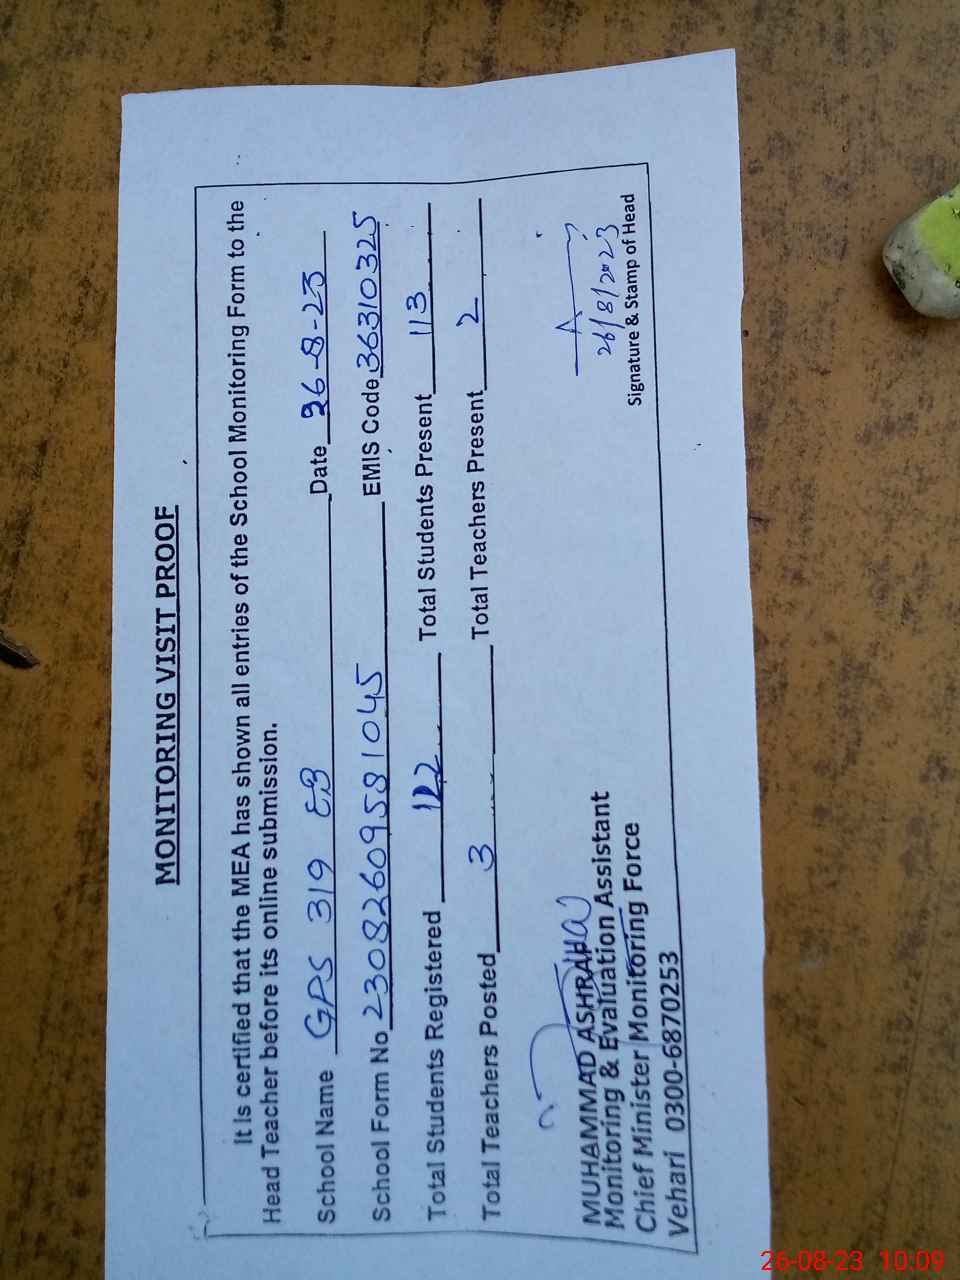 MONITORING VISIT PROOF
It is certified that the MEA has shown all entries of the School Monitoring Form to the
Head Teacher before its online submission.
School Name GPS 319 EB Date 26-8-23
School Form No 2308260958 1045 EMIS Code 36310325
Total Students Registered 122 Total Students Present 113
Total Teachers Posted 3 Total Teachers Present 2
26/8/2023
Signature & Stamp of Head
MUHAMMAD ASHRAF
Monitoring & Evaluation Assistant
Chief Minister Monitoring Force
Vehari 0300-6870253
26-08-23 10:09